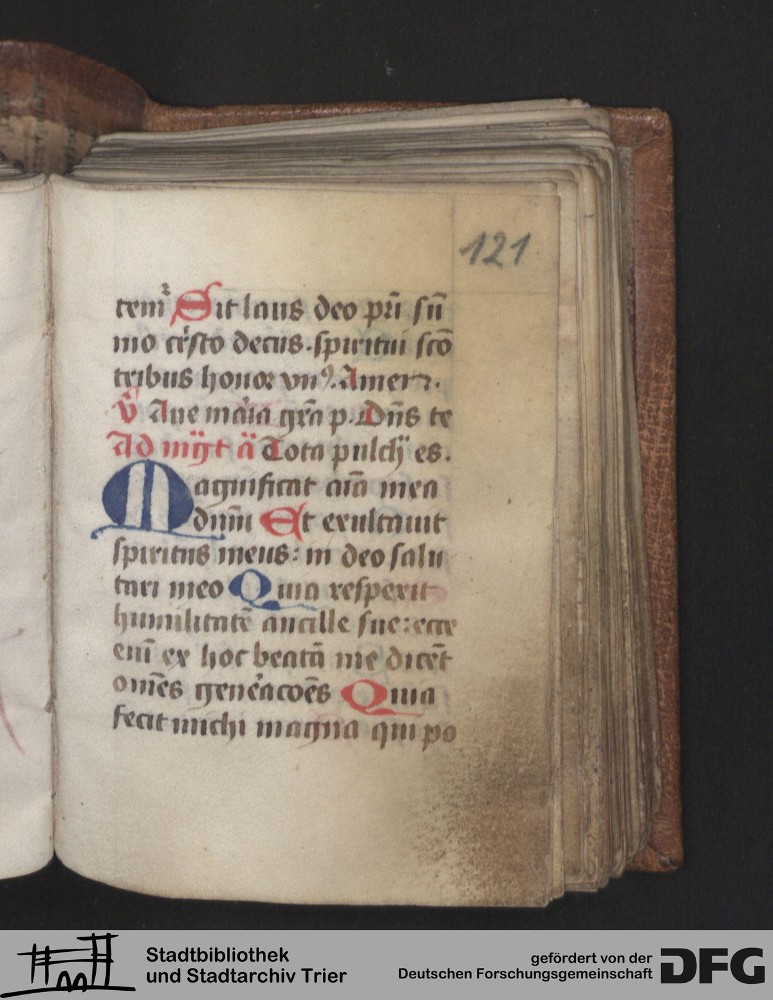 121
tem̄ Sit laus deo pr̄i sū
mo cr̄sto decus. spiritui sc̄o
tribus honor vn⁹. Amen.
v̄ Aue mar̄ia gr̄a p. Dn̄s te
Ad mḡt ā Tota pulch̄ es.
Magnificat aīa mea
dn̄m Et exultauit
spiritus meus: in deo salu
tari meo Quia respexit
humilitatē ancille sue: ecce
enī ex hoc beatā me dicēt
om̄es gen̄eacōēs Quia
fecit michi magna qui po
Stadtbibliothek
und Stadtarchiv Trier
gefördert von der
Deutschen Forschungsgemeinschaft
DFG